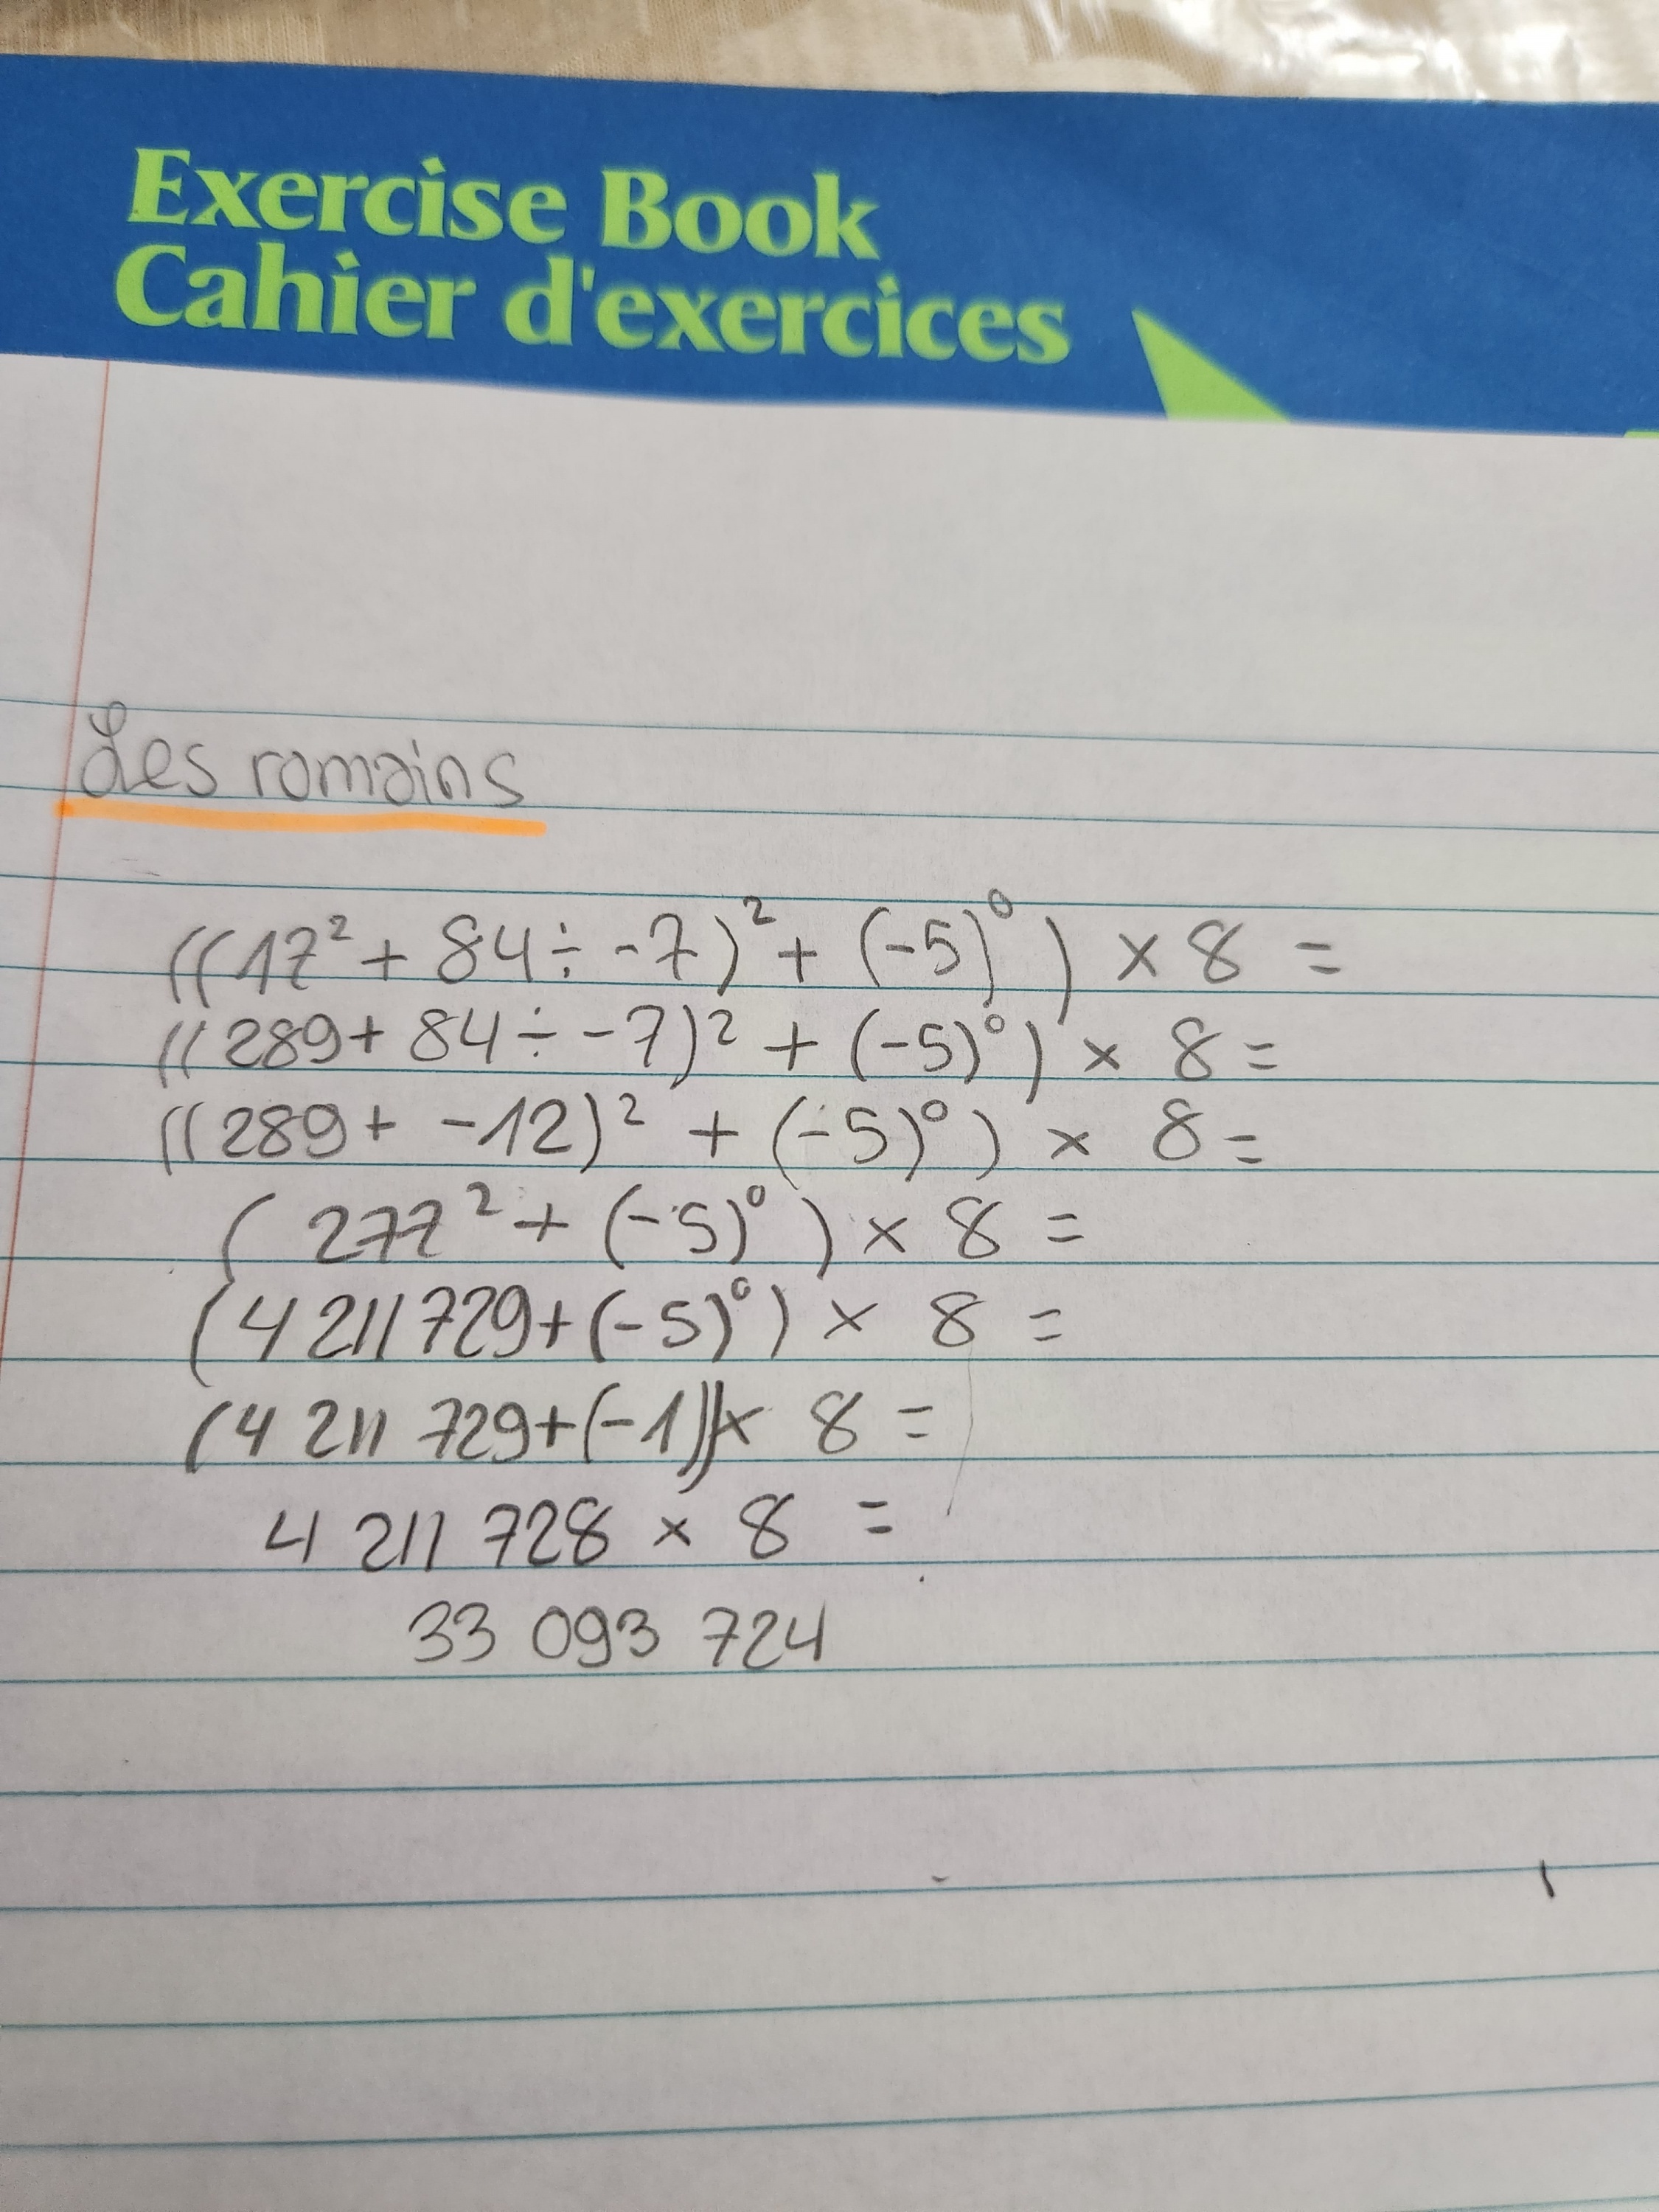 Exercise Book
Cahier d'exercices
Les romains
((17² + 84 ÷ -7)² + (-5)⁰) × 8 =
((289 + 84 ÷ -7)² + (-5)⁰) × 8 =
((289 + -12)² + (-5)⁰) × 8 =
(277² + (-5)⁰) × 8 =
(4 211 729 + (-5)⁰) × 8 =
(4 211 729 + (-1)) × 8 =
4 211 728 × 8 =
33 093 724